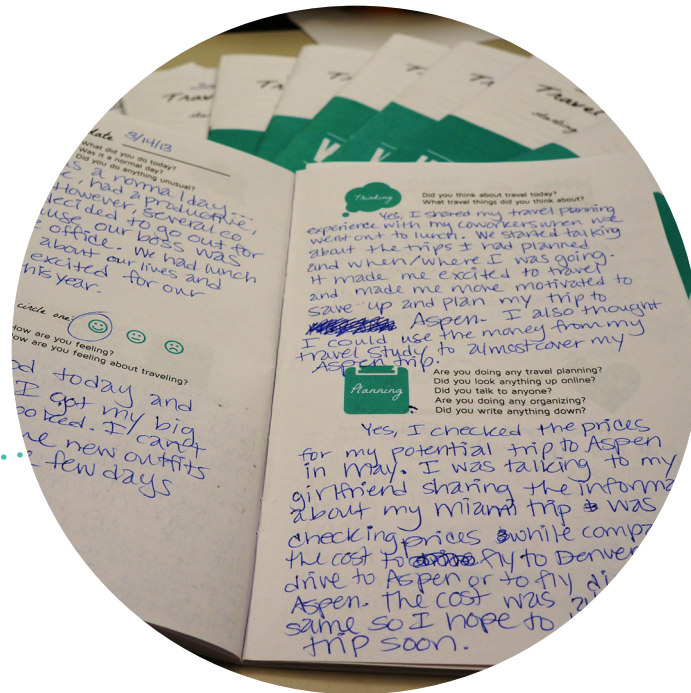 Travel
Travel
date 3/14/13
What did you do today?
Was it a normal day?
Did you do anything unusual?
a normal day
had a productive,
However, several co
decided to go out for
our boss was
office. We had lunch
about our lives and
excited for our
this year.
circle one:
How are you feeling?
How are you feeling about traveling?
today and
I got my big
booked. I can't
new outfits
few days
Thinking
Did you think about travel today?
What travel things did you think about?
Yes, I shared my travel planning
experience with my coworkers when we
went out to lunch. We started talking
about the trips I had planned
and when/where I was going.
It made me excited to travel
and made me more motivated to
save up and plan my trip to
Aspen. I also thought
I could use the money from my
travel study to almost cover my
Aspen trip.
Planning
Are you doing any travel planning?
Did you look anything up online?
Did you talk to anyone?
Are you doing any organizing?
Did you write anything down?
Yes, I checked the prices
for my potential trip to Aspen
in may. I was talking to my
girlfriend sharing the informa
about my miami trip & was
checking prices while compa
the cost to fly to Denver
drive to Aspen or to fly di
Aspen. the cost was
same so I hope to
trip soon.